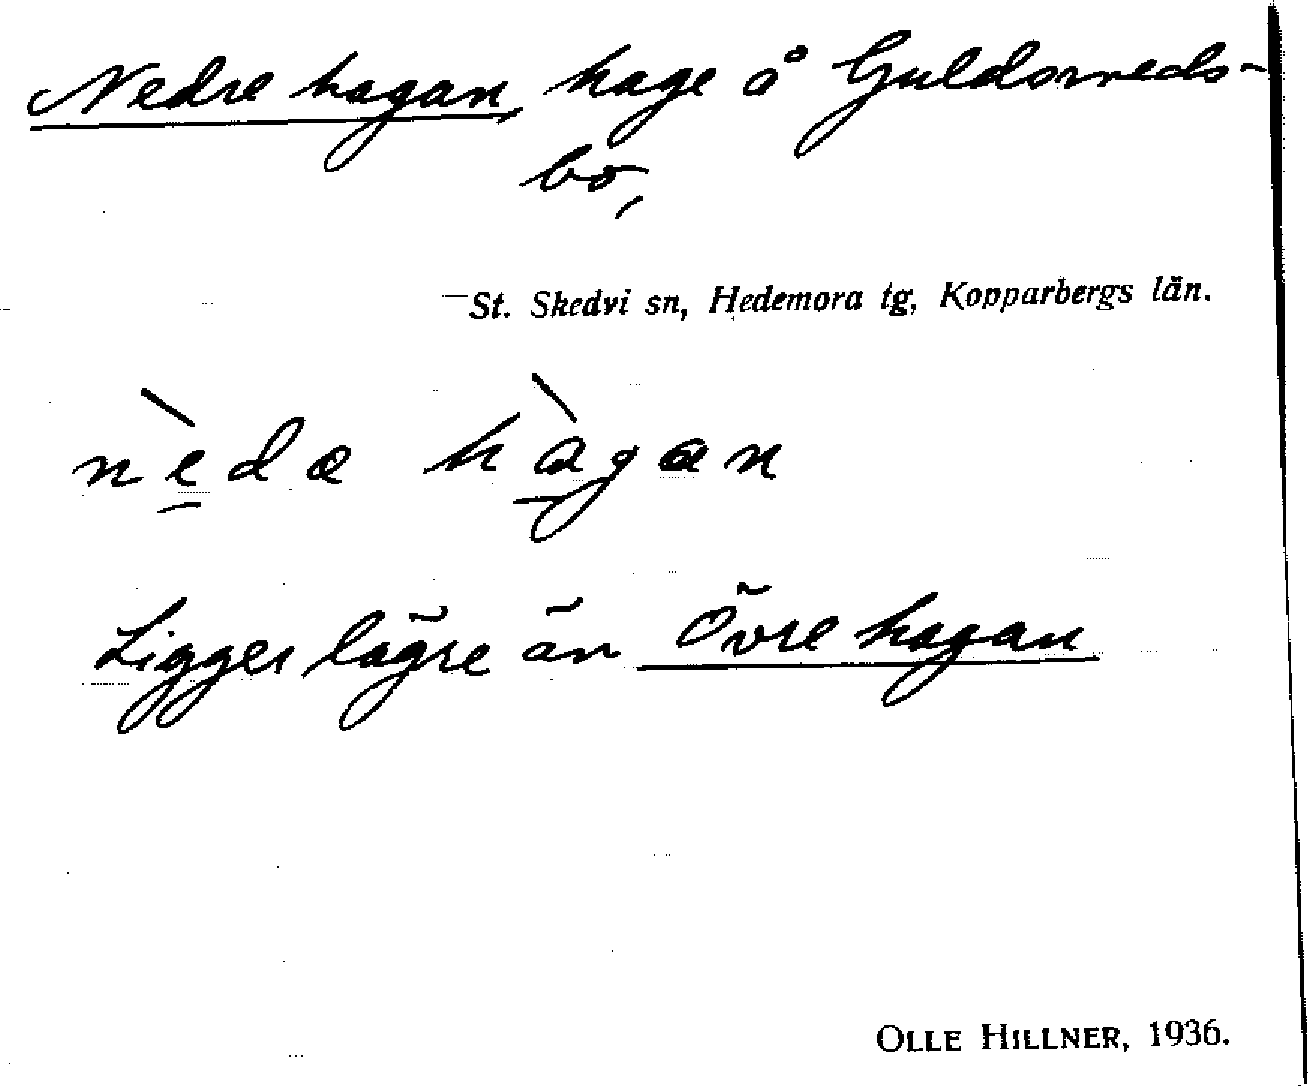 Nedre hagan, hage å Guldsmeds-
bo,
St. Skedvi sn, Hedemora tg, Kopparbergs län.
nèdæ hàgan
Ligger lägre än Övre hagan
OLLE HILLNER, 1936.